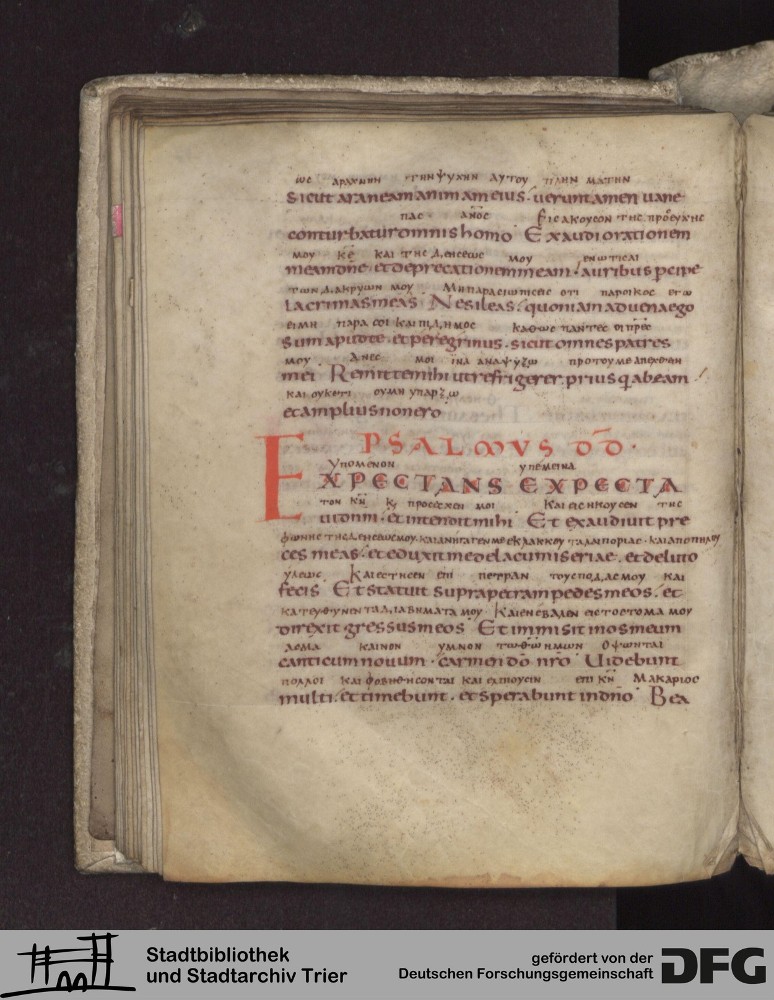 ωϲ αραχνην την ψυχην αυτου πλην ματην
Sicut araneam animam eius · ueruntamen uane
παϲ ανοϲ Ειϲακουϲον τηϲ προϲευχηϲ
conturbatur omnis homo Exaudi orationem
μου κε και τηϲ δεηϲεωϲ μου ενωτιϲαι
meam dne · et deprecationem meam · auribus pcipe
των δακρυων μου Μη παραϲιωπηϲηϲ οτι παροικοϲ εγω
lacrimas meas Ne sileas · quoniam aduena ego
ειμη παρα ϲοι και πιδημοϲ καθωϲ παντεϲ οι πρεϲ
sum apud te · et peregrinus · sicut omnes patres
μου ανεϲ μοι ινα αναψυξω προ του με απελθειν
mei Remitte mihi ut refrigerer · prius q abeam
και ουκετι ου μη υπαρξω
et amplius non ero
PSALMVS DD ·
Υπομενον υπεμεινα
EXPECTANS EXPECTA
τον κν κ, προϲεϲχεν μοι Και ειϲηκουϲεν τηϲ
ui dnm · et intendit mihi Et exaudiuit pre
φωνηϲ τηϲ δεηϲεωϲ μου · και ανηγαγεν με εκ λακκου ταλαιποριαϲ · και απο πηλου
ces meas · et eduxit me de lacu miseriae · et de luto
υλεωϲ Και εϲτηϲεν επι πετραν τουϲ ποδαϲ μου και
fecis Et statuit supra petram pedes meos · et
κατευθυνεν τα διαβηματα μου Και ενεβαλεν ειϲ το ϲτομα μου
direxit gressus meos Et immisit in os meum
αϲμα καινον υμνον τω θω ημων Οψωνται
canticum nouum · carmen do nro Uidebunt
πολλοι και φοβηθηϲονται και ελπιουϲιν επι κν Μακαριοϲ
multi · et timebunt · et sperabunt in dno Bea
Stadtbibliothek
und Stadtarchiv Trier
gefördert von der
Deutschen Forschungsgemeinschaft
DFG